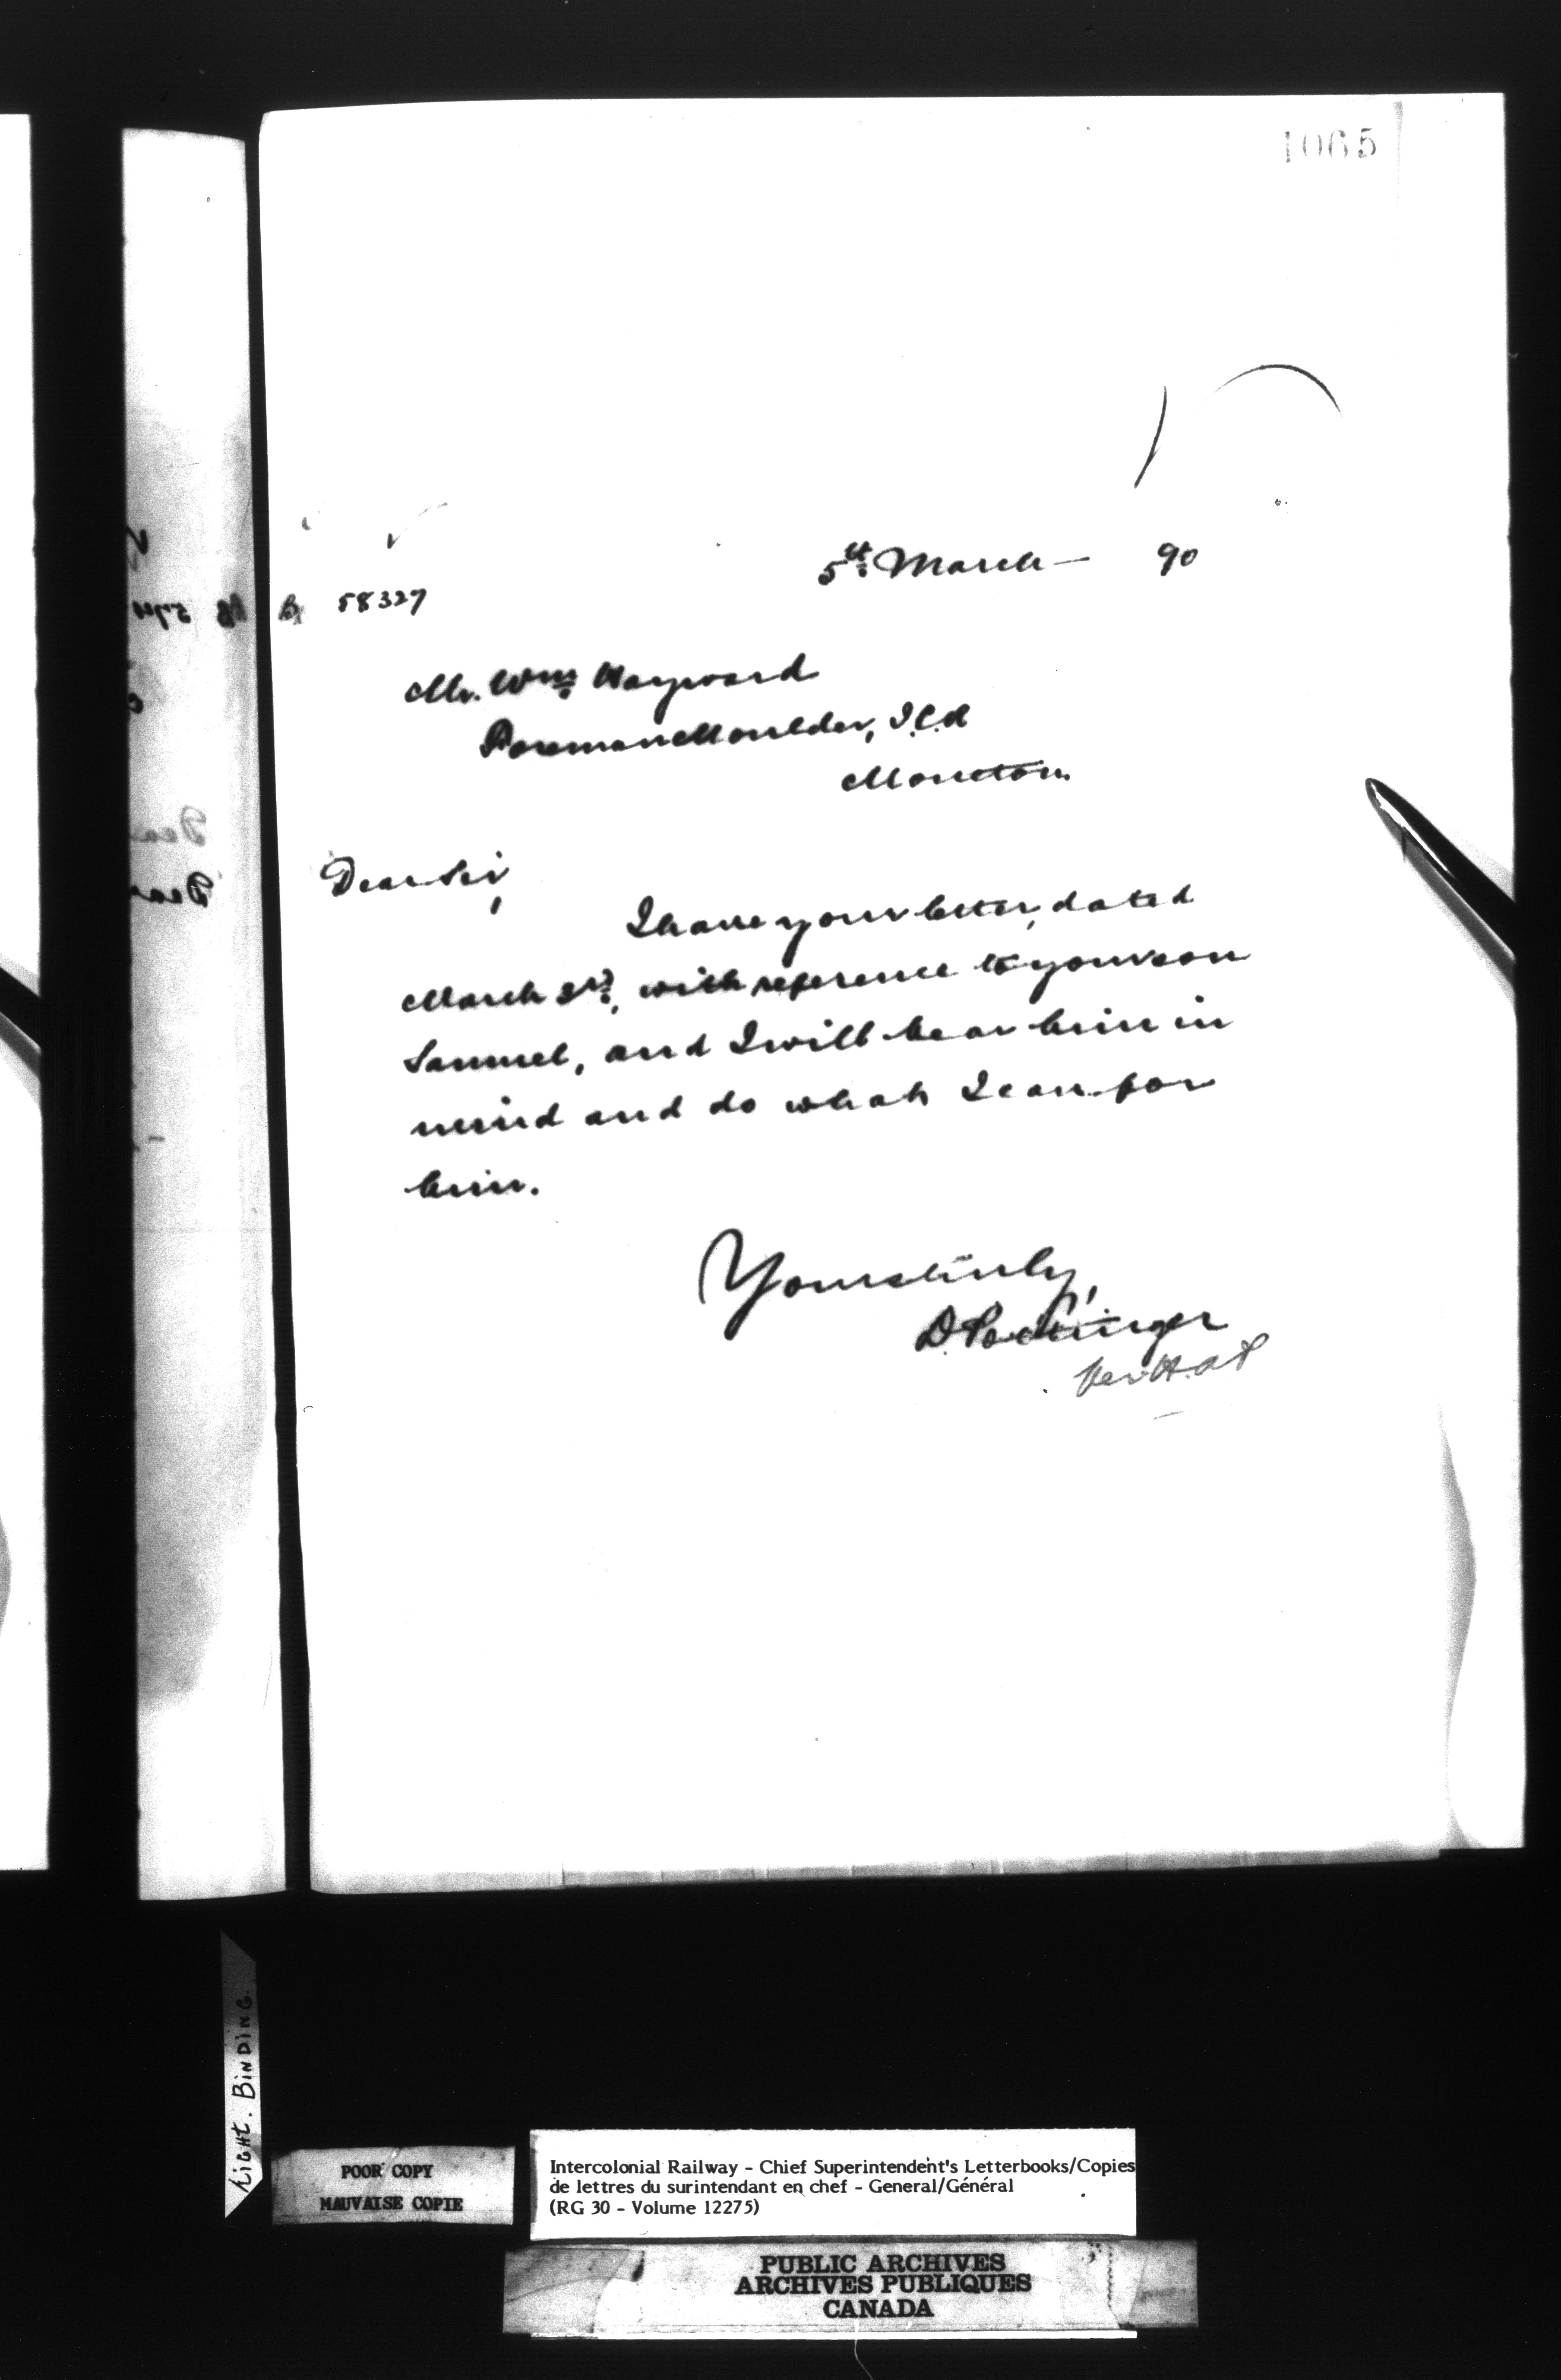 1065
5th March — 90
58327
Mr. Wm Hayward
Foreman Moulder, I.C.R
Moncton.
Dear Sir,
I have your letter, dated
March 3rd, with reference to your son
Samuel, and I will bear him in
mind and do what I can for
him.
Yours truly,
D. Pottinger
Per H.A.P
Dea
Dear
Light. Binding.
POOR COPY
MAUVAISE COPIE
Intercolonial Railway - Chief Superintendent's Letterbooks/Copies
de lettres du surintendant en chef - General/Général
(RG 30 - Volume 12275)
PUBLIC ARCHIVES
ARCHIVES PUBLIQUES
CANADA